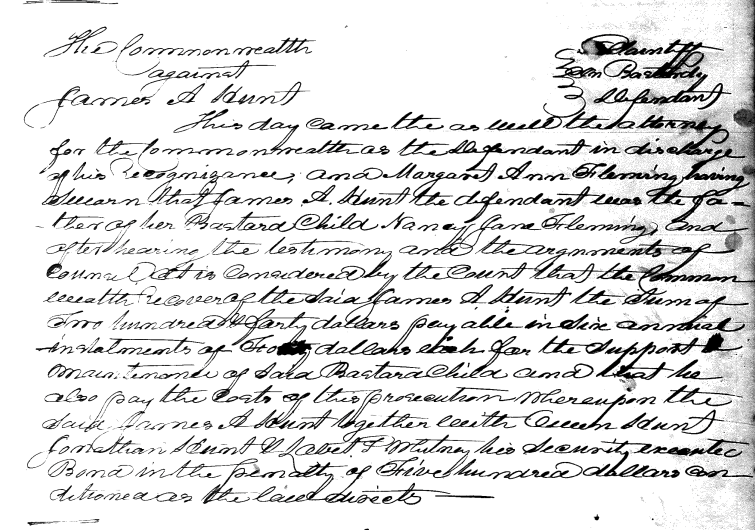 The Commonwealth Plaintiff
against on Bastardy
James A Hunt Defendant
This day came the as well the attorney
for the Commonwealth as the Defendant in discharge
of his Recognizance, and Margaret Ann Fleming, having
Sworn that James A. Hunt the defendant was the fa-
-ther of her Bastard Child Nancy Jane Fleming, and
after hearing the testimony and the arguments of
counsel it is considered by the Court that the Common
wealth recover of the said James A Hunt the Sum of
Two hundred & forty dollars payable in six annual
instalments of Forty dollars each for the support &
maintenance of said Bastard Child and that he
also pay the costs of this prosecution Whereupon the
said James A Hunt together with Owen Hunt
Jonathan Hunt & his Security execute
Bond in the penalty of Five hundred dollars con
ditioned as the law directs